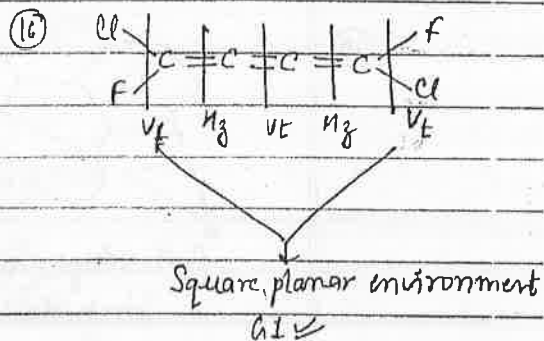 16
Cl F
C = C = C = C
F Cl
Vt Hz Vt Hz Vt
Square planar environment
GI ✓